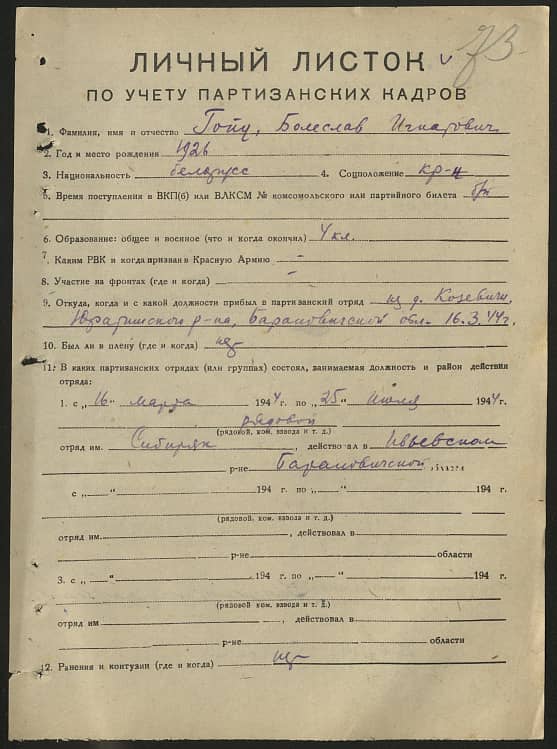 73
ЛИЧНЫЙ ЛИСТОК
ПО УЧЕТУ ПАРТИЗАНСКИХ КАДРОВ
1. Фамилия, имя и отчество Болеслав Игнатович
2. Год и место рождения 1926
3. Национальность белорусс 4. Соцположение кр-н
5. Время поступления в ВКП(б) или ВЛКСМ № комсомольского или партийного билета б/п
6. Образование: общее и военное (что и когда окончил) 4 кл.
7. Каким РВК и когда призван в Красную Армию –
8. Участие на фронтах (где и когда) –
9. Откуда, когда и с какой должности прибыл в партизанский отряд из д. Козевичи,
Юратишского р-на, Барановичской обл. 16.3.44г.
10. Был ли в плену (где и когда) нет
11. В каких партизанских отрядах (или группах) состоял, занимаемая должность и район действия
отряда:
1. с „16" марта 1944 г. по „25" июля 1944 г.
рядовой
(рядовой, ком. взвода и т. д.)
отряд им. Сибиряк, действовал в Ивьевском
р-не Барановичской области
с „ " 194 г. по „ " 194 г.
(рядовой, ком. взвода и т. д.)
отряд им. , действовал в
р-не области
3. с „ " 194 г. по „ " 194 г.
(рядовой ком. взвода и т. д.)
отряд им , действовал в
р-не области
12. Ранения и контузии (где и когда) нет